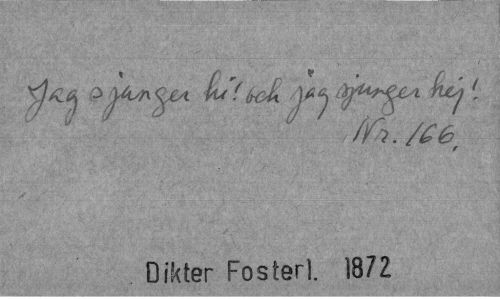 Jag sjunger hi! och jag sjunger hej!
Nr. 166.
Dikter Fosterl. 1872